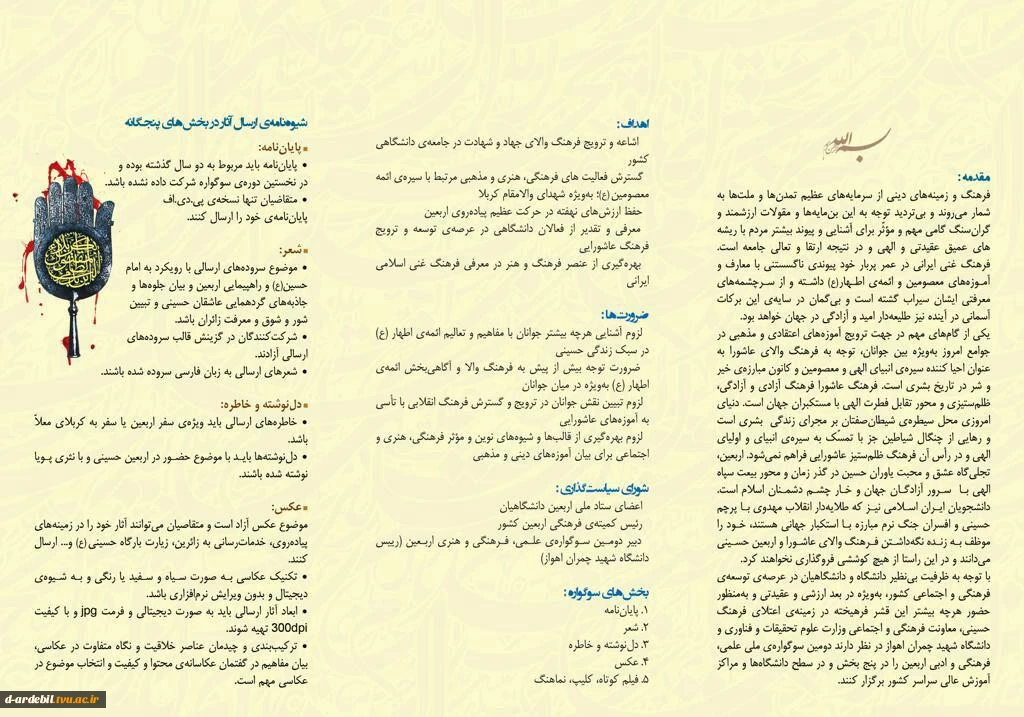 مقدمه:
فرهنگ و زمینه‌های دینی از سرمایه‌های عظیم تمدن‌ها و ملت‌ها به
شمار می‌روند و بی‌تردید توجه به این بن‌مایه‌ها و مقولات ارزشمند و
گران‌سنگ گامی مهم و مؤثّر برای آشنایی و پیوند بیشتر مردم با ریشه
های عمیق عقیدتی و الهی و در نتیجه ارتقا و تعالی جامعه است.
فرهنگ غنی ایرانی در عمر پربار خود پیوندی ناگسستنی با معارف و
آموزه‌های معصومین و ائمه‌ی اطهار(ع) داشته و از سرچشمه‌های
معرفتی ایشان سیراب گشته است و بی‌گمان در سایه‌ی این برکات
آسمانی در آینده نیز طلیعه‌دار امید و آزادگی در جهان خواهد بود.
یکی از گام‌های مهم در جهت ترویج آموزه‌های اعتقادی و مذهبی در
جوامع امروز به‌ویژه بین جوانان، توجه به فرهنگ والای عاشورا به
عنوان احیا کننده سیره‌ی انبیای الهی و معصومین و کانون مبارزه‌ی خیر
و شر در تاریخ بشری است. فرهنگ عاشورا فرهنگ آزادی و آزادگی،
ظلم‌ستیزی و محور تقابل فطرت الهی با مستکبران جهان است. دنیای
امروزی محل سیطره‌ی شیطان‌صفتان بر مجرای زندگی بشری است
و رهایی از چنگال شیاطین جز با تمسّک به سیره‌ی انبیای و اولیای
الهی و در رأس آن فرهنگ ظلم‌ستیز عاشورایی فراهم نمی‌شود. اربعین،
تجلی‌گاه عشق و محبت یاوران حسین در گذر زمان و محور بیعت سپاه
الهی با سرور آزادگان جهان و خار چشم دشمنان اسلام است.
دانشجویان ایران اسلامی نیز که طلایه‌دار انقلاب مهدوی با پرچم
حسینی و افسران جنگ نرم مبارزه با استکبار جهانی هستند، خود را
موظف به زنده نگه‌داشتن فرهنگ والای عاشورا و اربعین حسینی
می‌دانند و در این راستا از هیچ کوششی فروگذاری نخواهند کرد.
با توجه به ظرفیت بی‌نظیر دانشگاه و دانشگاهیان در عرصه‌ی توسعه‌ی
فرهنگی و اجتماعی کشور، به‌ویژه در بعد ارزشی و عقیدتی و به‌منظور
حضور هرچه بیشتر این قشر فرهیخته در زمینه‌ی اعتلای فرهنگ
حسینی، معاونت فرهنگی و اجتماعی وزارت علوم تحقیقات و فناوری و
دانشگاه شهید چمران اهواز در نظر دارند دومین سوگواره‌ی ملی علمی،
فرهنگی و ادبی اربعین را در پنج بخش و در سطح دانشگاه‌ها و مراکز
آموزش عالی سراسر کشور برگزار کنند.
اهداف:
اشاعه و ترویج فرهنگ والای جهاد و شهادت در جامعه‌ی دانشگاهی
کشور
گسترش فعالیت های فرهنگی، هنری و مذهبی مرتبط با سیره‌ی ائمه
معصومین(ع)؛ به‌ویژه شهدای والامقام کربلا
حفظ ارزش‌های نهفته در حرکت عظیم پیاده‌روی اربعین
معرفی و تقدیر از فعالان دانشگاهی در عرصه‌ی توسعه و ترویج
فرهنگ عاشورایی
بهره‌گیری از عنصر فرهنگ و هنر در معرفی فرهنگ غنی اسلامی
ایرانی
ضرورت‌ها:
لزوم آشنایی هرچه بیشتر جوانان با مفاهیم و تعالیم ائمه‌ی اطهار (ع)
در سبک زندگی حسینی
ضرورت توجه بیش از پیش به فرهنگ والا و آگاهی‌بخش ائمه‌ی
اطهار (ع) به‌ویژه در میان جوانان
لزوم تبیین نقش جوانان در ترویج و گسترش فرهنگ انقلابی با تأسی
به آموزه‌های عاشورایی
لزوم بهره‌گیری از قالب‌ها و شیوه‌های نوین و مؤثر فرهنگی، هنری و
اجتماعی برای بیان آموزه‌های دینی و مذهبی
شورای سیاست‌گذاری:
اعضای ستاد ملی اربعین دانشگاهیان
رئیس کمیته‌ی فرهنگی اربعین کشور
دبیر دومین سوگواره‌ی علمی، فرهنگی و هنری اربعین (رییس
دانشگاه شهید چمران اهواز)
بخش‌های سوگواره:
۱. پایان‌نامه
۲. شعر
۳. دل‌نوشته و خاطره
۴. عکس
۵. فیلم کوتاه، کلیپ، نماهنگ
شیوه‌نامه‌ی ارسال آثار در بخش‌های پنجگانه
■ پایان‌نامه:
• پایان‌نامه باید مربوط به دو سال گذشته بوده و
در نخستین دوره‌ی سوگواره شرکت داده نشده باشد.
• متقاضیان تنها نسخه‌ی پی.دی.اف
پایان‌نامه‌ی خود را ارسال کنند.
■ شعر:
• موضوع سروده‌های ارسالی با رویکرد به امام
حسین(ع) و راهپیمایی اربعین و بیان جلوه‌ها و
جاذبه‌های گردهمایی عاشقان حسینی و تبیین
شور و شوق و معرفت زائران باشد.
• شرکت‌کنندگان در گزینش قالب سروده‌های
ارسالی آزادند.
• شعرهای ارسالی به زبان فارسی سروده شده باشند.
■ دل‌نوشته و خاطره:
• خاطره‌های ارسالی باید ویژه‌ی سفر اربعین یا سفر به کربلای معلاّ
باشد.
• دل‌نوشته‌ها باید با موضوع حضور در اربعین حسینی و با نثری پویا
نوشته شده باشند.
■ عکس:
موضوع عکس آزاد است و متقاضیان می‌توانند آثار خود را در زمینه‌های
پیاده‌روی، خدمات‌رسانی به زائرین، زیارت بارگاه حسینی(ع) و... ارسال
کنند.
• تکنیک عکاسی به صورت سیاه و سفید یا رنگی و به شیوه‌ی
دیجیتال و بدون ویرایش نرم‌افزاری باشد.
• ابعاد آثار ارسالی باید به صورت دیجیتالی و فرمت jpg و با کیفیت
300dpi تهیه شوند.
• ترکیب‌بندی و چیدمان عناصر خلاقیت و نگاه متفاوت در عکاسی،
بیان مفاهیم در گفتمان عکاسانه‌ی محتوا و کیفیت و انتخاب موضوع در
عکاسی مهم است.
d-ardebil.tvu.ac.ir